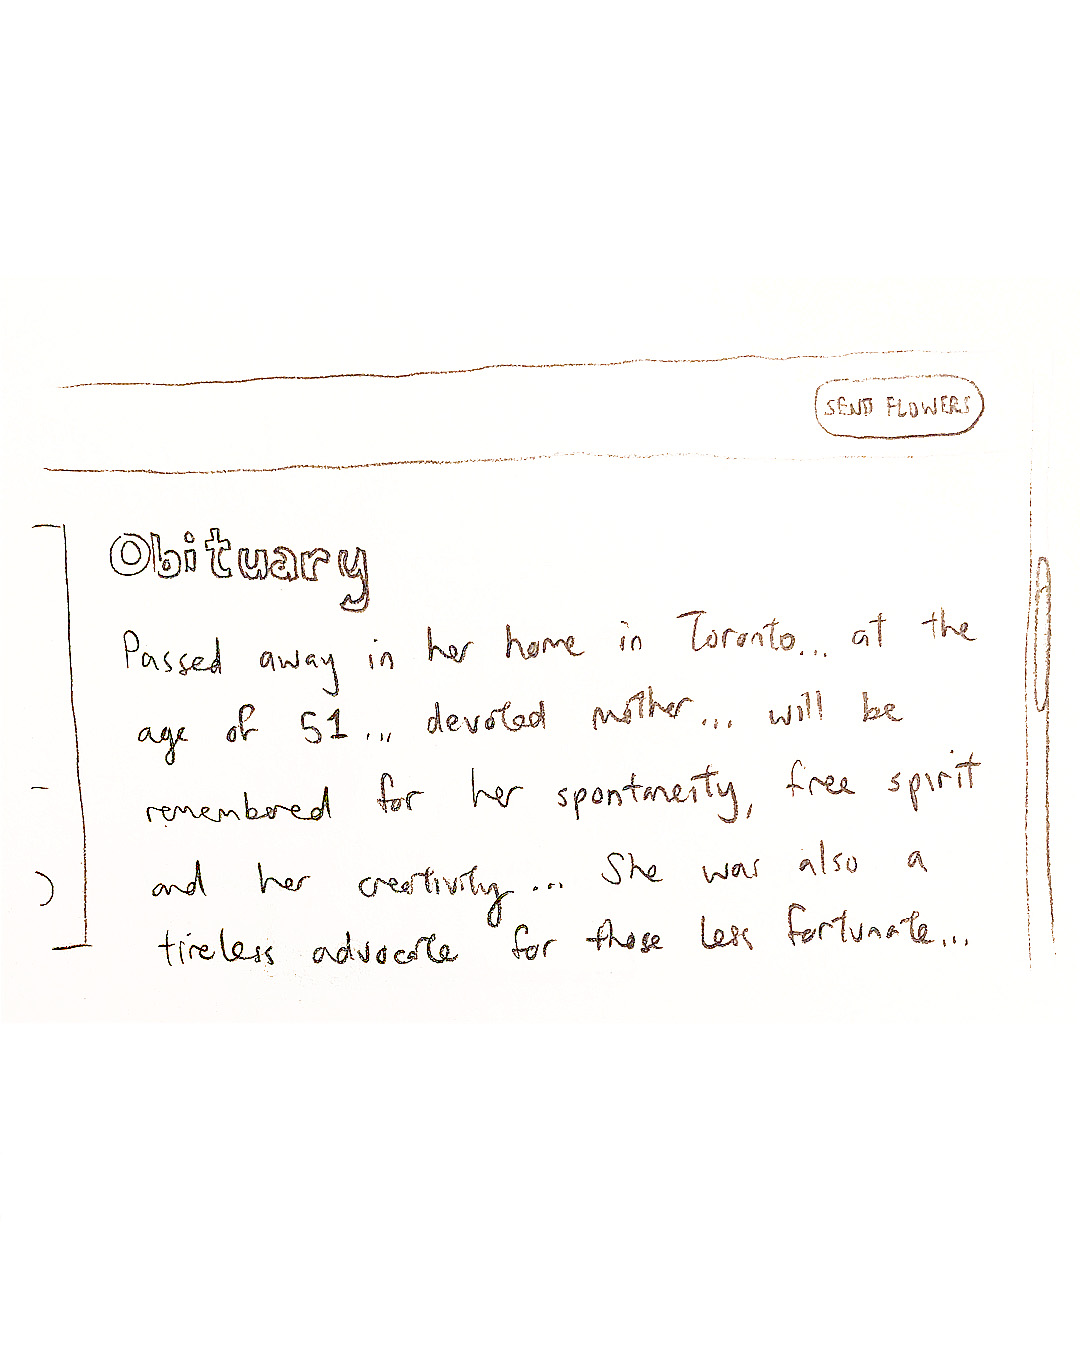 SEND FLOWERS
Obituary
Passed away in her home in Toronto... at the
age of 51... devoted mother... will be
remembered for her spontaneity, free spirit
and her creativity... She was also a
tireless advocate for those less fortunate...